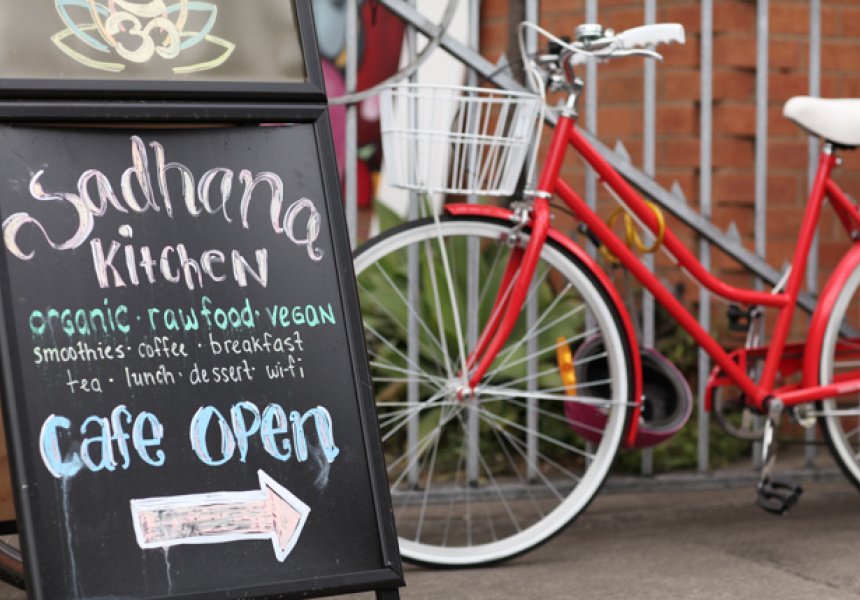 ॐ
Sadhana
Kitchen
organic · raw food · vegan
smoothies · coffee · breakfast
tea · lunch · dessert · wi-fi
Cafe Open